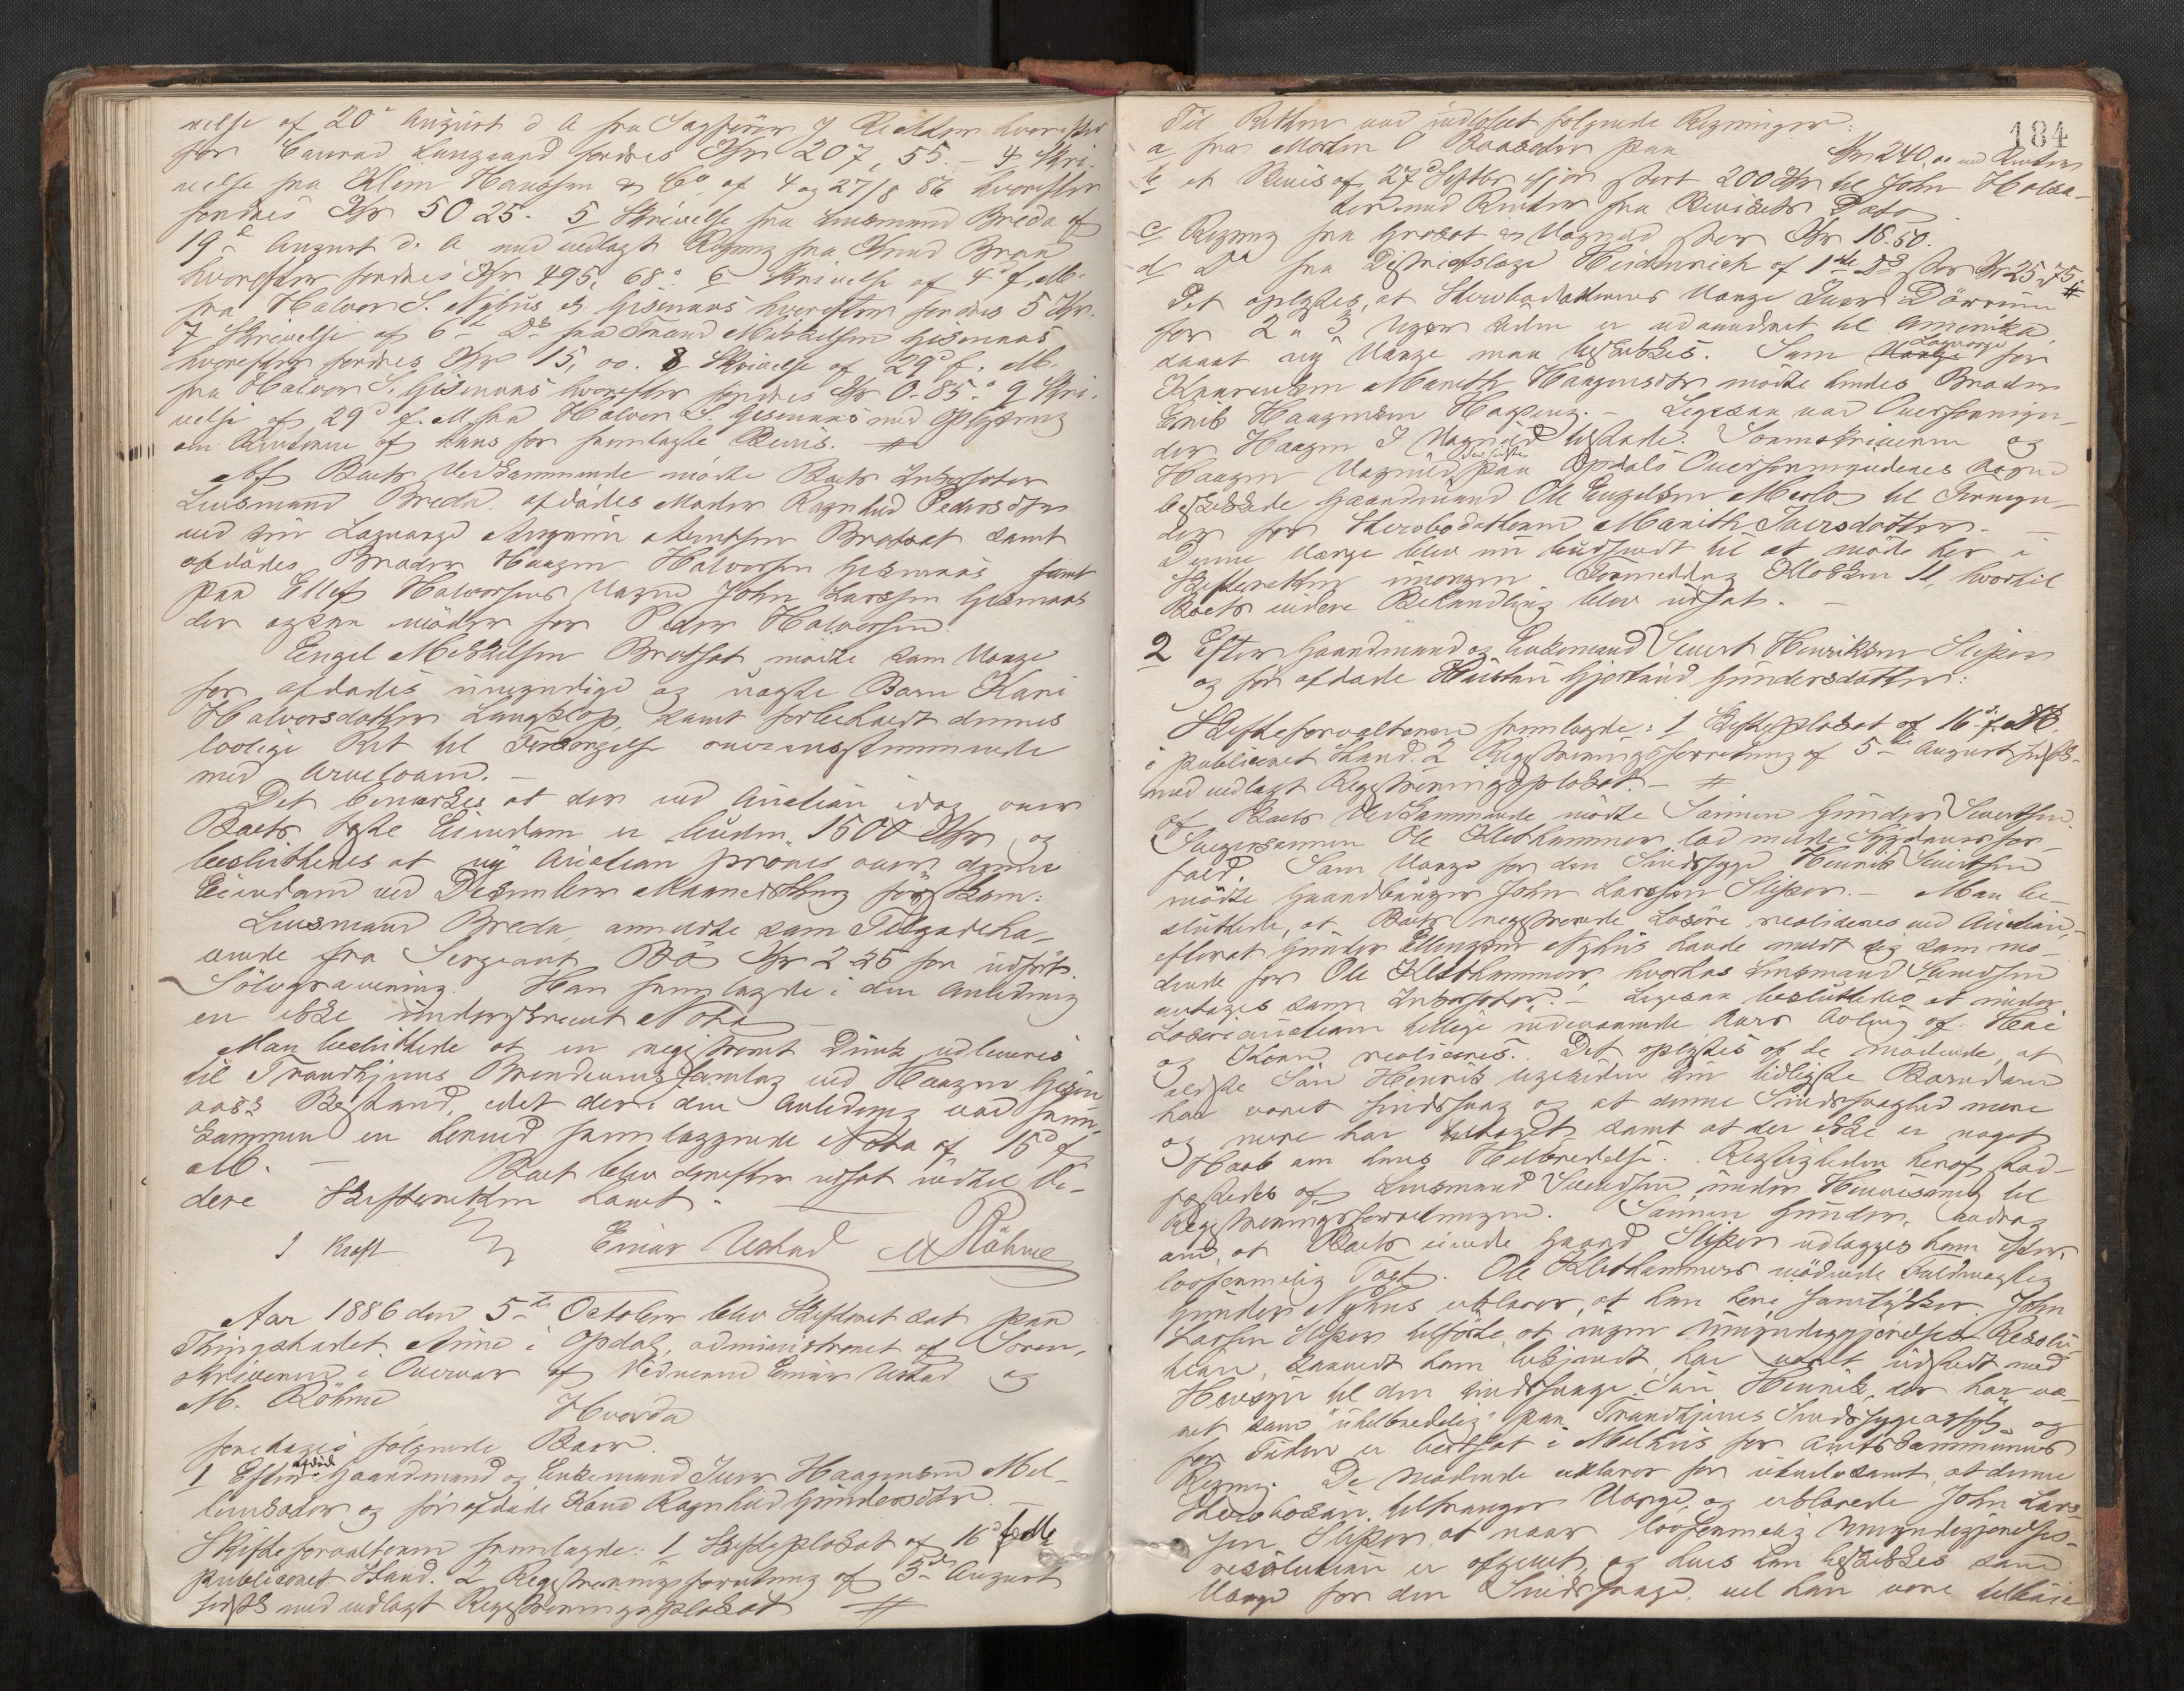 velse af 20de August d A fra Sagfører J Richter hvorefter
for Conrad Langaard fordres Kr 207,55. – 4 Skri-
velse fra Klem Hanssen & Co af 4 og 27/8 86 hvorefter
fordres Kr 50 25. 5 Skrivelse fra Lensmand Breda af
19de August d. A med vedlagt Regning fra Knud Braa
hvorefter fordres Kr 495,68. 6 Skrivelse af 4de f. M.
fra Halvor S. Nyhus av Gisenaas hvorefter fordres 5 Kr.
7 Skrivelse af 6te Ds fra Amund Mikkelsen Gisenaas
hvorefter fordres Kr 15,00. 8 Skrivelse af 29d f. M.
fra Halvor S. Gisenaas hvorefter fordres Kr 0.85. 9 Skri-
velse af 29d f. M fra Halvor S. Gisenaas med Oplysning
om Renterne af hans før fremlagte Bevis. #
Af Boets Vedkommende mødte Boets Inkassator
Lensmand Breda, afdødes Moder Ragnhild Pedersdtr
ved sin Lagværge Amund Arntsen Bratset samt
afdødes Broder Haagen Halvorsen Gisenaas samt
paa Ellef Halvorsens Vegne John Larssen Gisenaas
der ogsaa møder for Peder Halvorsen.
Engel Mikkelsen Bratset mødte som Værge
for afdødes umyndige og uægte Barn Kari
Halvorsdatter Langklop, samt forbeholdt dennes
lovlige Ret til Forsørgelse overensstemmende
med Arveloven. –
Det bemærkes at der ved Auction idag over
Boets faste Eiendom er buden 1500 Kr og
besluttedes at ny Auction prøves over denne
Eiendom ved December Maanedsthing førstkom:
Lensmand Breda, anmeldte som Tilgodeha-
vende fra Sergeant Bö Kr 2.35 for udført
Sølvgravering. Han fremlagde i den Anledning
en ikke underskrevet Nota –
Man besluttede at en registreret Dunk udleveres
til Trondhjems Brænderiers Samlag ved Haagen Gisen-
aas's Bestand, idet der i den Anledning var frem-
kommen en herved fremlæggende Nota af 15d f
M. – Boet blev derefter udsat indtil Vi-
dere Skifteretten hævet. –
J Kraft Einar Ustad M Röhme
Aar 1886 den 5te October blev Skifteret sat paa
Thingstedet Aune i Opdal, administreret af Soren-
skriveren i Overvær af Vidnerne Einar Ustad og
M. Röhme Hvorda
foretoges følgende Boer.
1 Efter afdøde Gaardmand og Enkemand Iver Haagensen Mel-
lemsæter og før afdøde Kone Ragnhild Gundersdtr. –
Skifteforvalteren fremlagde: 1 Skifteplakat af 16d f M
publiceret Stand. 2 Registreringsforretning af 3d August
sidstl. med vedlagt Registreringsplakat #
184
Til Retten var indløbet følgende Regninger:
a fra Morten O Baasæter paa Kr 240,00 med Renter
b et Bevis af 27d Septbr ifjor stort 200 Kr til John Holsæ-
ter med Renter fra Bevisets Dato.
c Regning fra Grøset & Vognild stor Kr 16.50.
d Do fra Districtslæge Heidenreich af 1ste Ds stor Kr 25,75. #
Det oplystes, at Stervbodatterens Værge Iver Dørrem
for 2 a 3 Uger siden er udvandret til Amerika,
saaat ny Værge maa beskikkes. Som Lagværge for
Kaarenken Marith Haagensdtr mødte hendes Broder
Erik Haagensen Hagseng. – Ligesaa var Overformyn-
der Haagen J Vognild tilstede. Sorenskriveren og
Haagen Vognild, den sidste paa Opdals Overformynderies Vegne
beskikkede Gaardmand Ole Engelsen Mærk til Formyn-
der for Stervbodatteren Marith Iversdatter. –
Denne Værge blev nu budsendt til at møde her i
Skifteretten imorgen Formiddag Klokken 11, hvortil
Boets videre Behandling blev udsat. –
2 Efter Gaardmand og Enkemand Sivert Henriksen Sliper
og før afdøde Hustru Gjertrud Gundersdatter:
Skifteforvalteren fremlagde: 1 Skifteplakat af 16d f. M.
i publiceret Stand. 2 Registreringsforretning af 5te August sidstl.
med vedlagt Registreringsplakat. – #
Af Boets Vedkommende mødte Sønnen Gunder Sivertsen.
Svigersønnen Ole Klethammer lod melde Sygdomsfor-
fald. Som Værge for den Sindssyge Henrik Sivertsen
mødte Gaardbruger John Larssen Sliper. – Man be-
sluttede, at Boets registrerede Løsøre realiseres ved Auction,
efterat Gunder Ellingsen Nyhus havde meldt sig som mø-
dende for Ole Klethammer, hvorhos Lensmand Sivertsen
antages som Inkassator. – Ligesaa besluttedes at under
Løsøreauctionen tillige indeværende Aars Avling af Høi
og Korn realiseres. Det oplystes af de mødende, at
ældste Søn Henrik ligesiden sin tidligste Barndom
har været sindssvag og at denne Sindssvaghed mere
og mere har tiltaget samt at der ikke er noget
Haab om hans Helbredelse. Rigtigheden heraf stad-
fæstedes af Lensmand Sivertsen under Henvisning til
Registreringsforretningen. Sønnen Gunder, androg
om, at Boets eiende Gaard Sliper udlægges ham efter
lovformelig Taxt. Ole Klethammers mødende Fuldmægtig
Gunder Nyhus erklærer, at han heri samtykker. John
Larsen Sliper tilførte, at ingen Umyndiggjørelses Resolu-
tion, saavidt ham bekjendt, har været udstedt med
Hensyn til den sindssvage Søn Henrik, der har væ-
ret som "uhelbredelig" paa Trondhjems Sindssygeasyl og
for Tiden er bortsat i Melhus for Amtskommunens
Regning. De Mødende erklærer for utvivlsomt, at denne
Stervbosøn tiltrænger Værge, og erklærede John Lars-
sen Sliper, at naar lovformelig Umyndiggjørelses-
resolution er afgivet, og hvis han beskikkes som
Værge for den Sindssvage, vil han være tilbøie